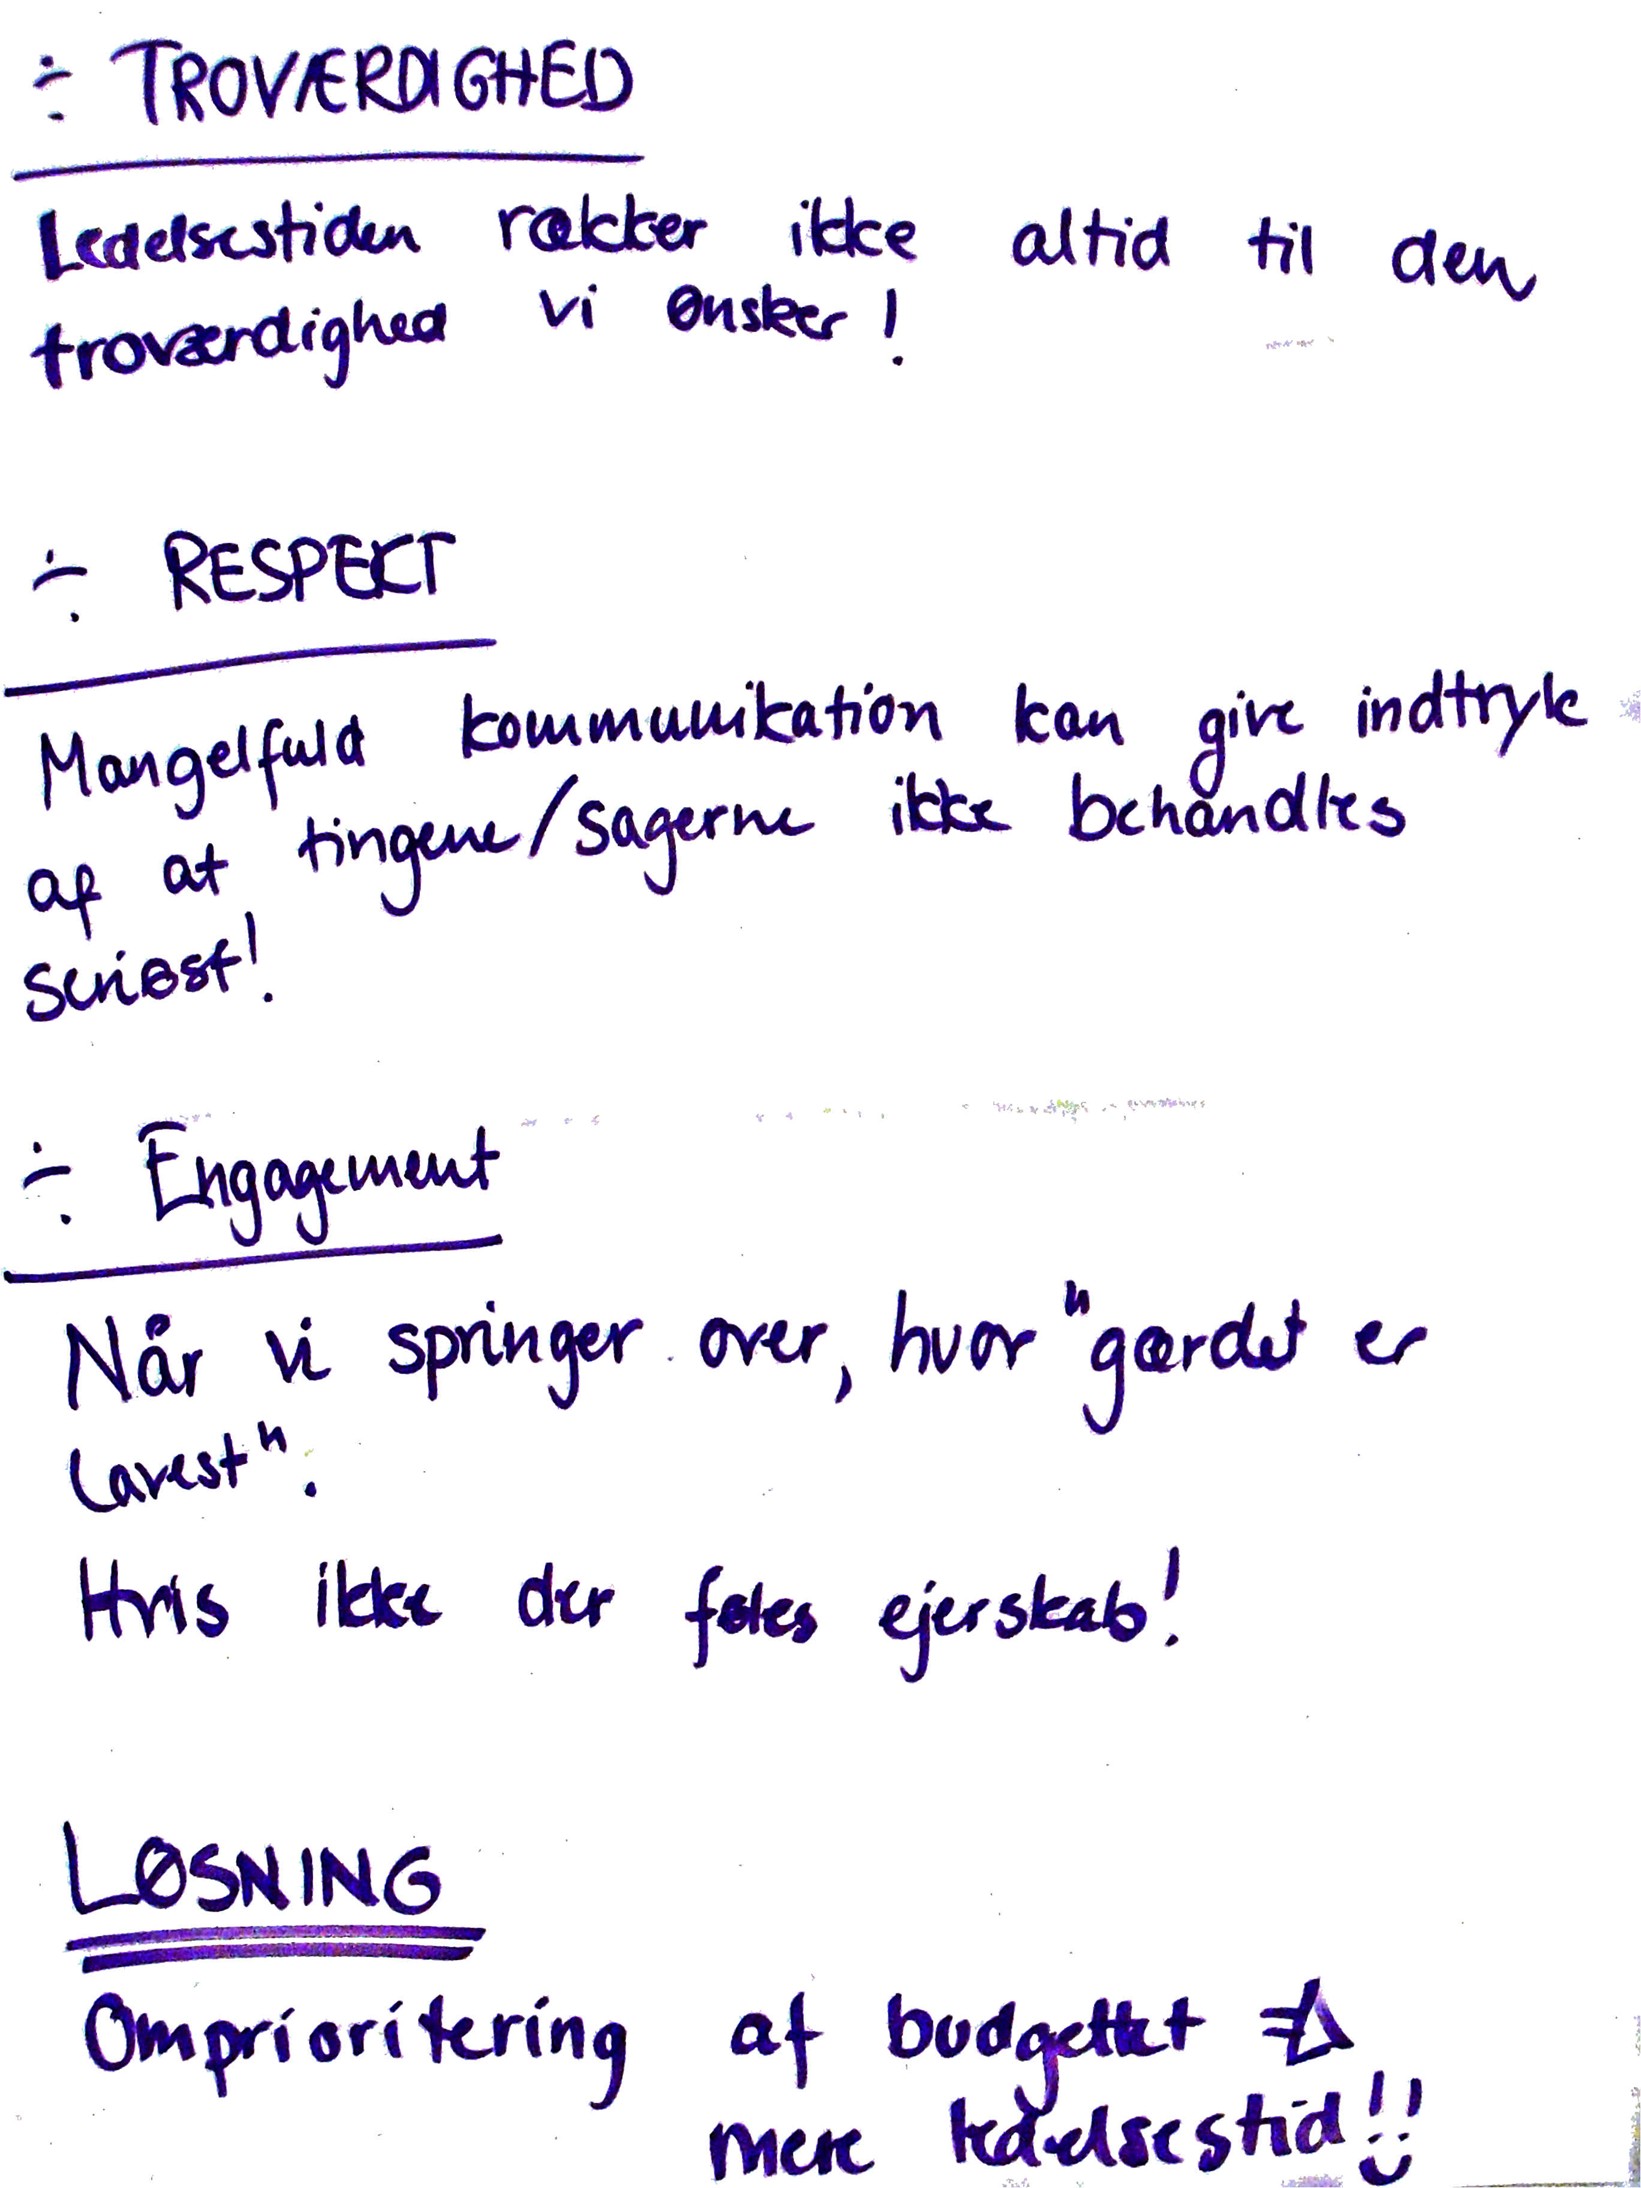 ÷ TROVÆRDIGHED
Ledelsestiden rækker ikke altid til den
troværdighed vi ønsker!
÷ RESPEKT
Mangelfuld kommunikation kan give indtryk
af at tingene/sagerne ikke behandles
seriøst!
÷ Engagement
Når vi springer over, hvor "gærdet er
lavest".
Hvis ikke der føles ejerskab!
LØSNING
Omprioritering af budgettet ⇒
mere ledelsestid!!